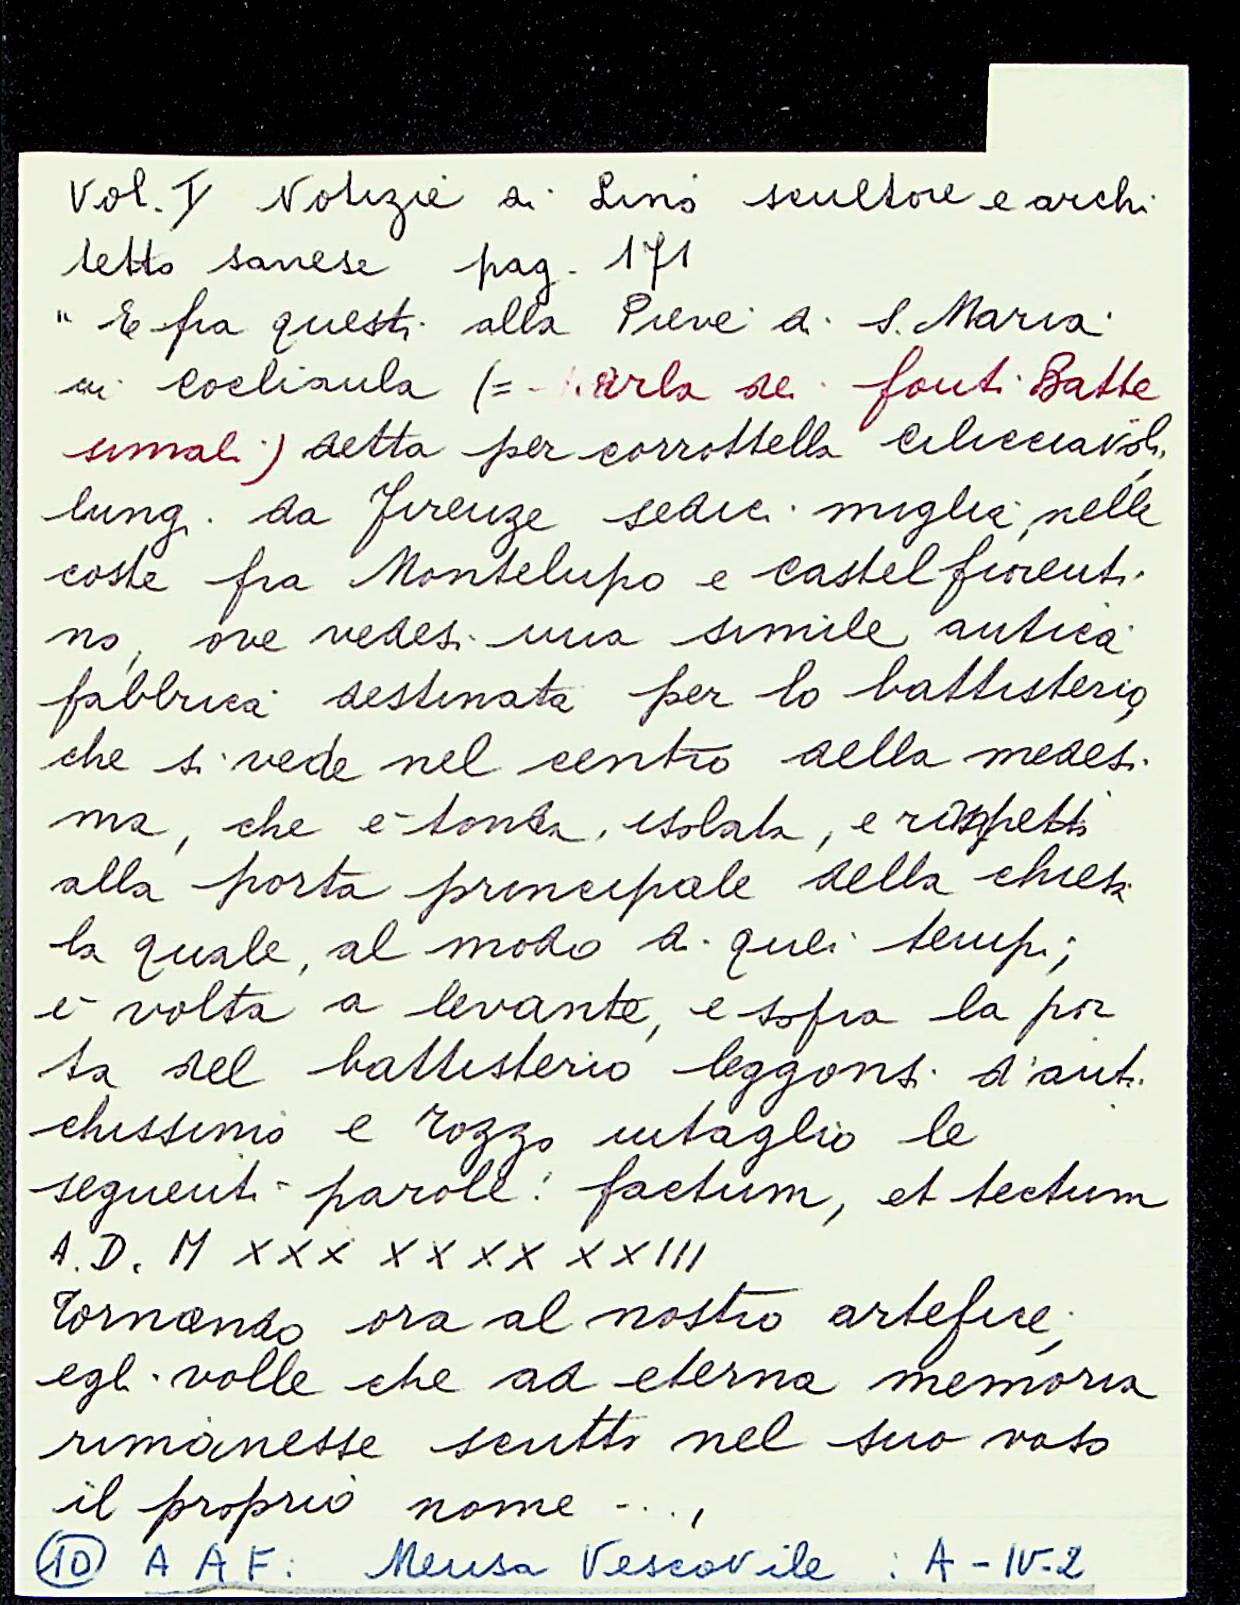 Vol. V Notizie di Lino scultore e archi
tetto sanese pag. 171
" E fra questi alla Pieve di S. Maria
di Coeliaula (= parla dei fonti Batte
simali) detta per corrottella Cilicciavoli,
lungi da Firenze sedici miglia, nelle
coste fra Montelupo e Castel fiorenti
no, ove vedesi una simile antica
fabbrica destinata per lo battisterio,
che si vede nel centro della medesi
ma, che e tonda, isolata, e rispetti
alla porta principale della chiesa
la quale, al modo di quei tempi;
e volta a levante, e sofra la por
ta del battisterio leggonsi d'anti
chissimo e rozzo intaglio le
seguenti parole: factum, et tectum
A.D. M XXX XXXX XXIII
Tornando ora al nostro artefice,
egli volle che ad eterna memoria
rimanesse scritto nel suo vaso
il proprio nome ...,
10 A A F: Mensa Vescovile : A-IV-2